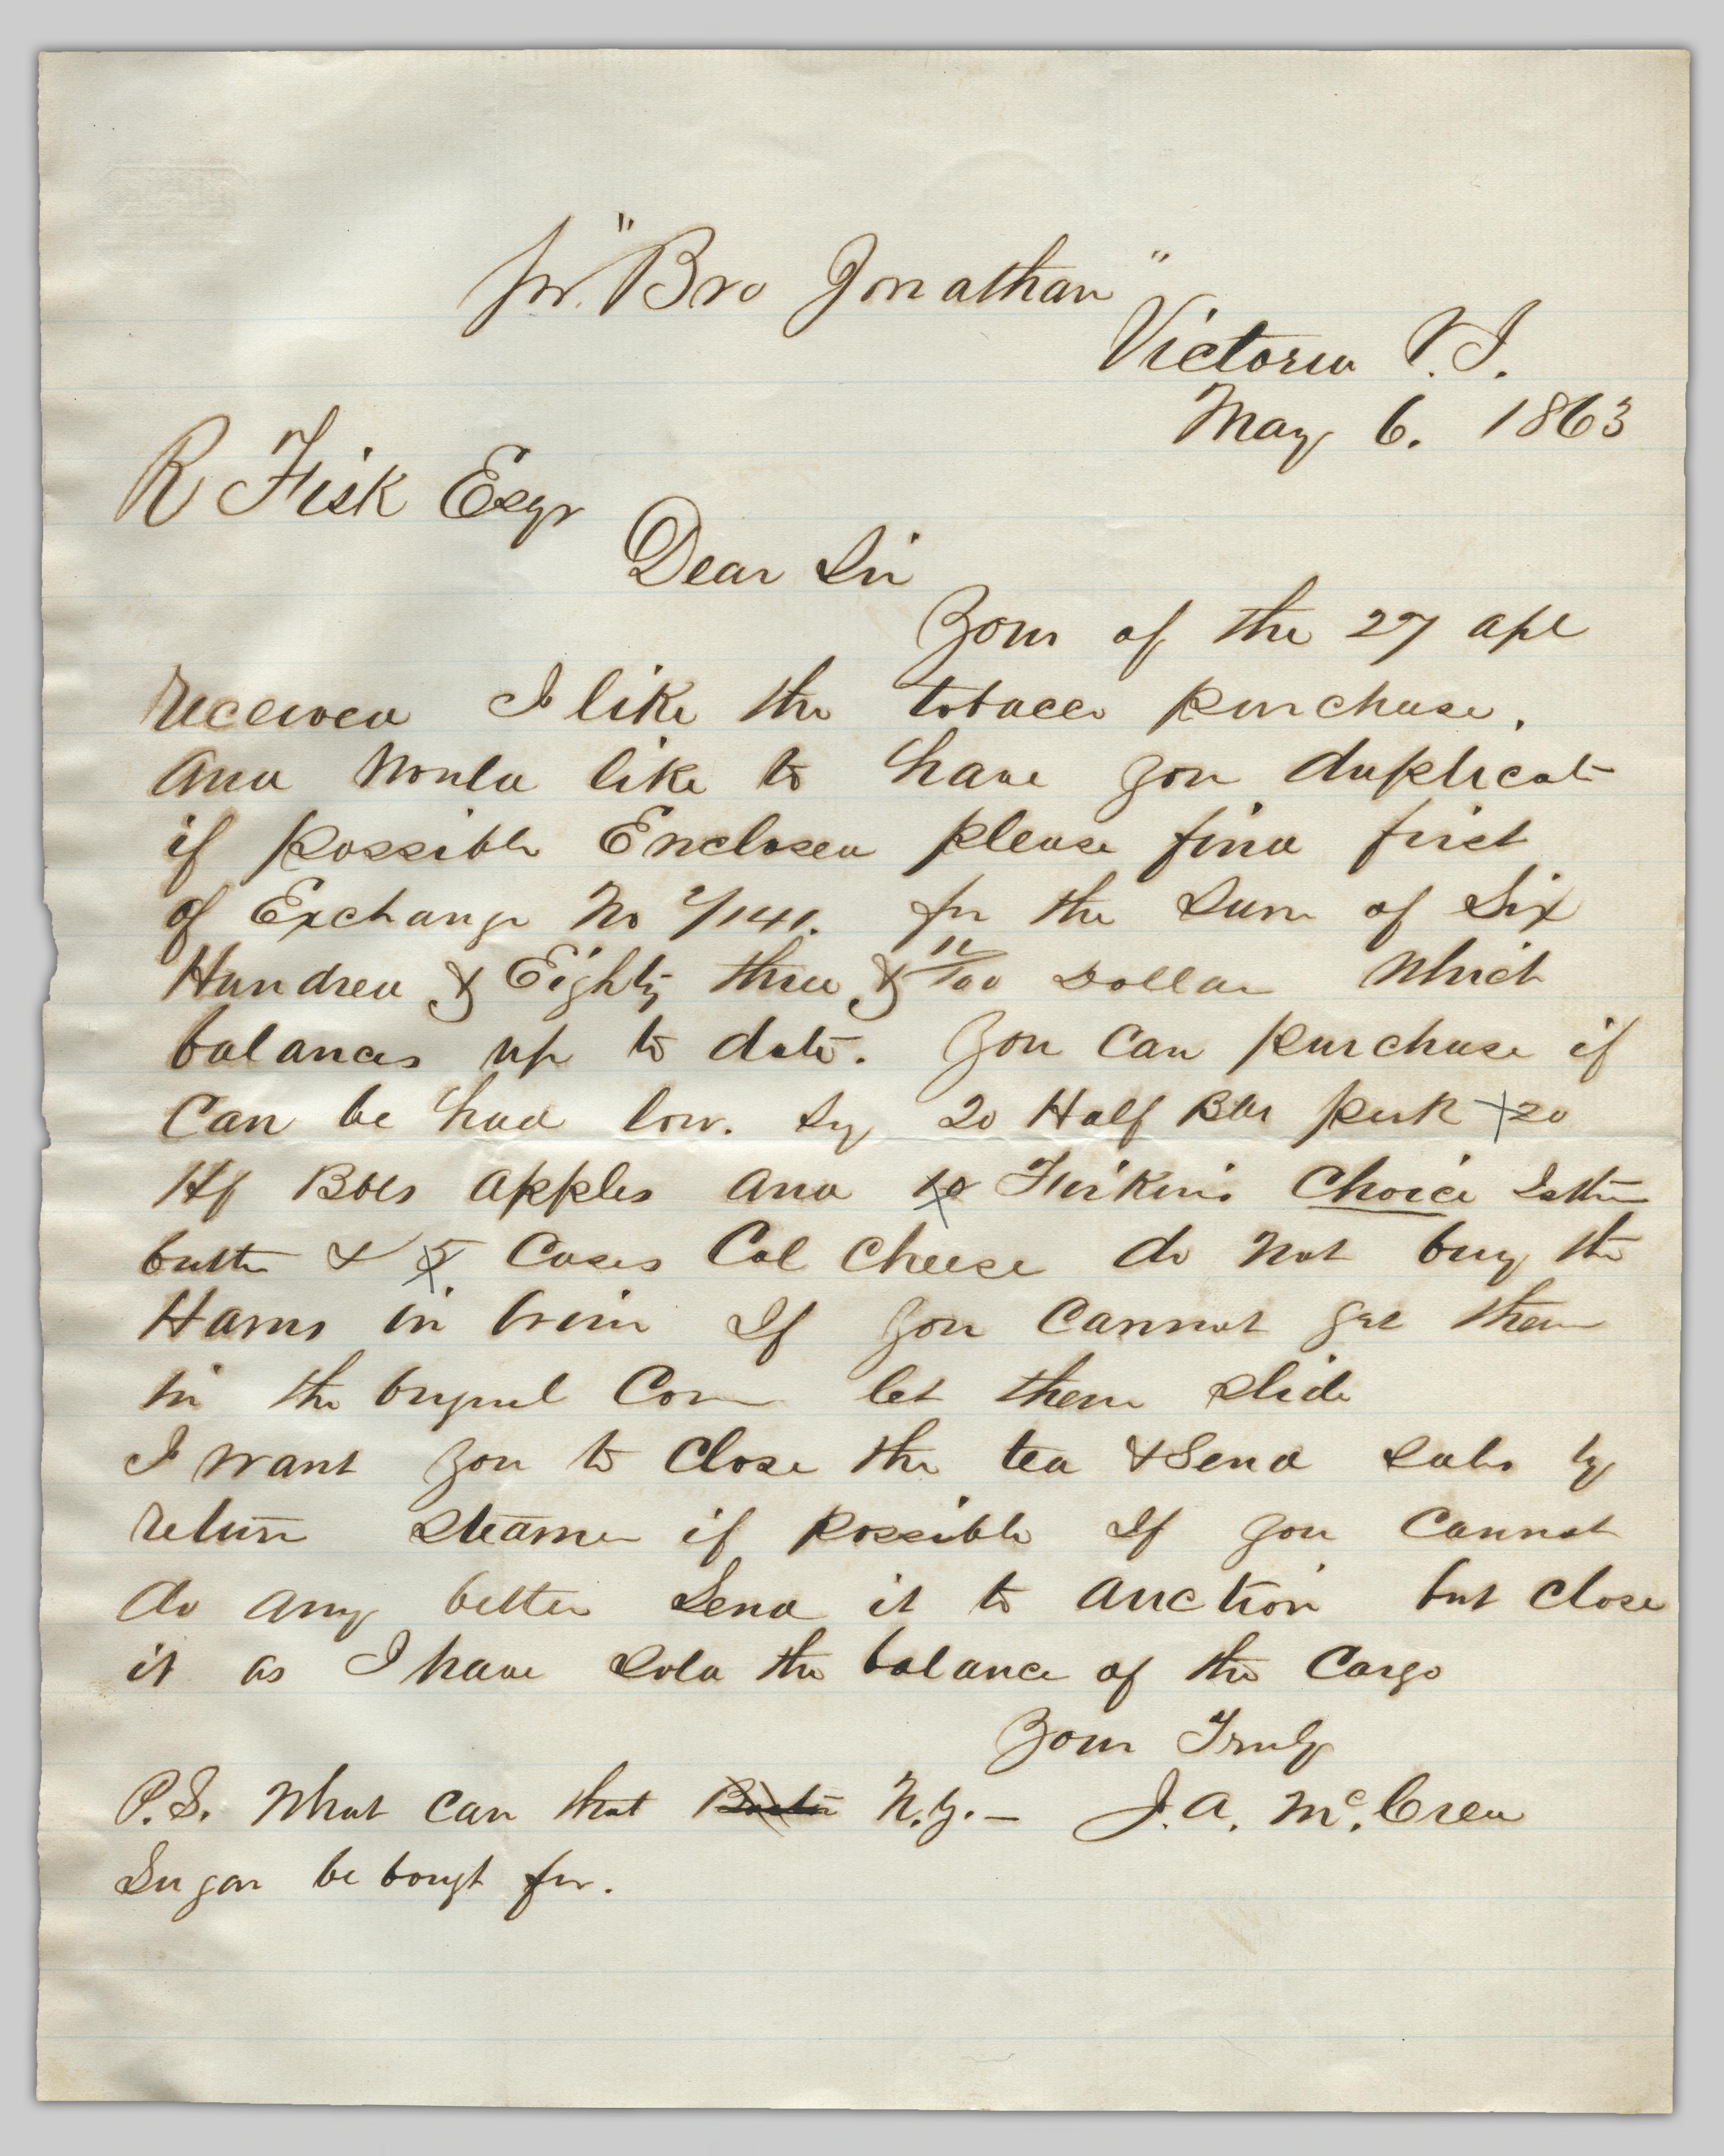 pr. "Bro Jonathan"
Victoria V.I.
May 6. 1863
R Fisk Esqr
Dear Sir
Your of the 27 apl
received I like the tobacco purchase.
and would like to have you duplicate
if possible Enclosed please find first
of Exchange No /1141. for the Sum of Six
Hundred & Eighty three & 12/100 Dollar which
balances up to date. You can purchase if
Can be had low. Sy 20 Half Bbls pork + 20
Hf Bbls apples and 10 Firkins Choice
butter & 5 Cases Cal Cheese do not buy the
Hams in brine If you cannot get them
in the let them slide
I want you to close the tea & Send Sales by
return steamer if possible If you cannot
do any better Send it to auction but close
it as I have Sold the balance of the Cargo
Your Truly
P.S. What can that N.Y. – J.A. McCrea
Sugar be bougt for.